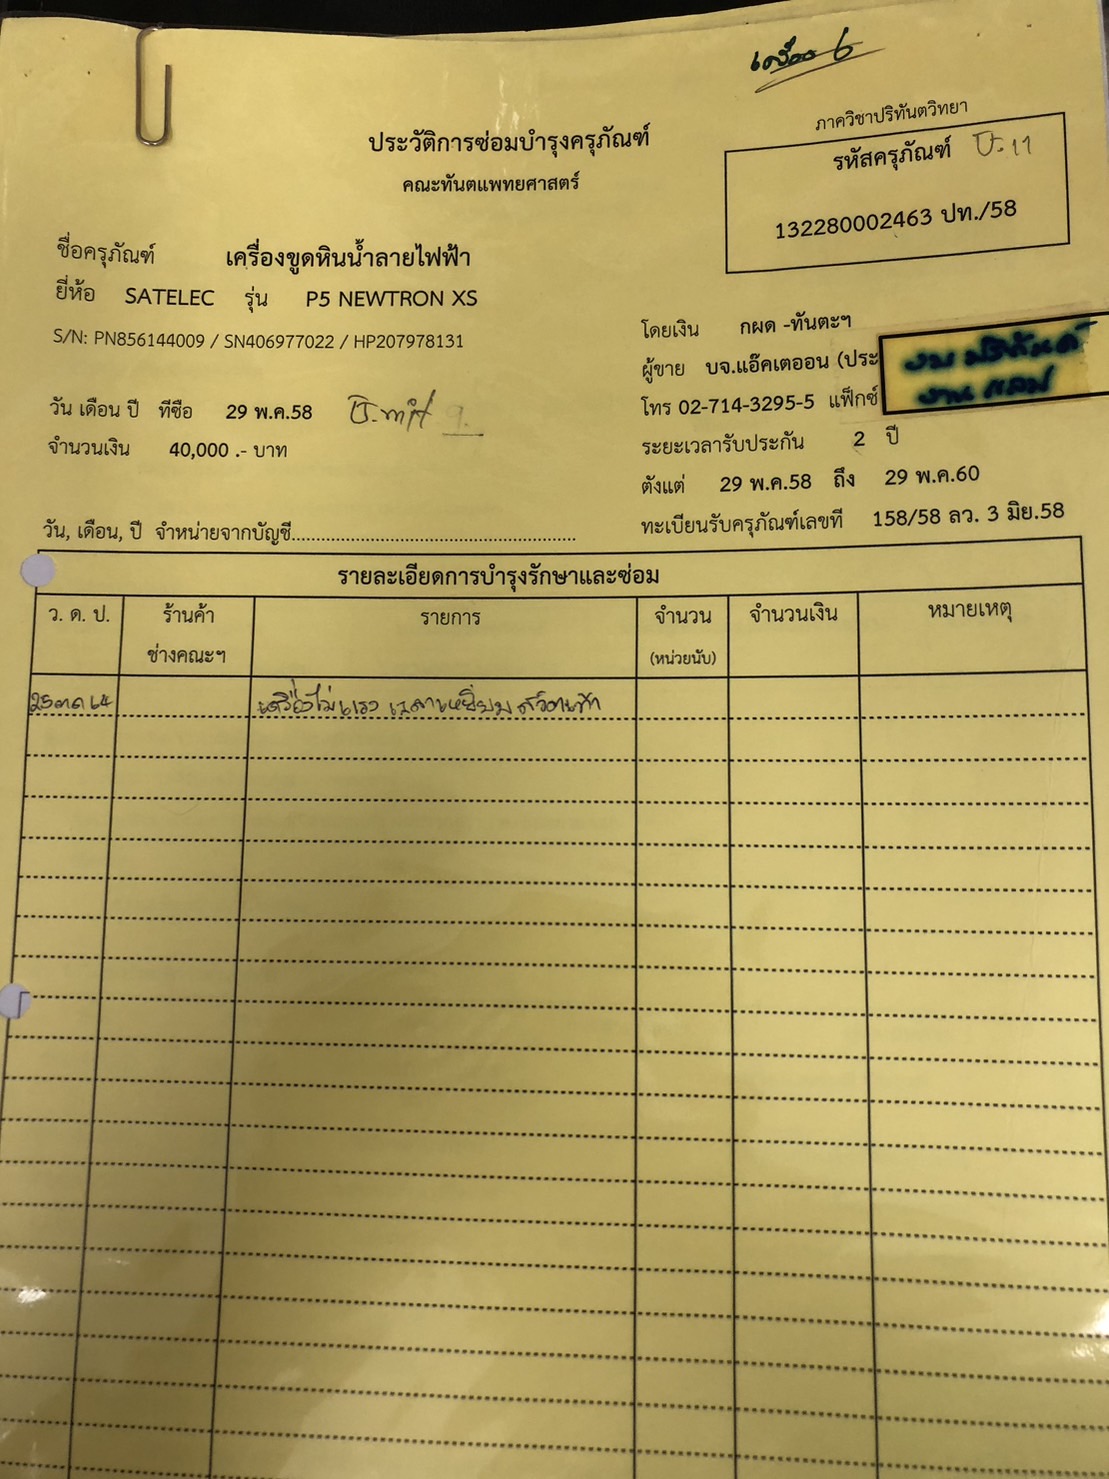 เครื่อง 6
ภาควิชาปริทันตวิทยา
ประวัติการซ่อมบำรุงครุภัณฑ์
คณะทันตแพทยศาสตร์
รหัสครุภัณฑ์ ป.11
132280002463 ปท./58
ชื่อครุภัณฑ์ เครื่องขูดหินน้ำลายไฟฟ้า
ยี่ห้อ SATELEC รุ่น P5 NEWTRON XS
S/N: PN856144009 / SN406977022 / HP207978131
วัน เดือน ปี ที่ซือ 29 พ.ค.58
จำนวนเงิน 40,000 .- บาท
โดยเงิน กผด -ทันตะฯ
ผู้ขาย บจ.แอ๊คเตออน (ประ
โทร 02-714-3295-5 แฟ็กซ์
ระยะเวลารับประกัน 2 ปี
ตังแต่ 29 พ.ค.58 ถึง 29 พ.ค.60
ทะเบียนรับครุภัณฑ์เลขที่ 158/58 ลว. 3 มิย.58
วัน, เดือน, ปี จำหน่ายจากบัญชี..........
รายละเอียดการบำรุงรักษาและซ่อม
ว. ด. ป. ร้านค้า ช่างคณะฯ รายการ จำนวน (หน่วยนับ) จำนวนเงิน หมายเหตุ
25 ตค 64 เครื่องไม่แรง เวลาเหยียบ สวิตเท้า